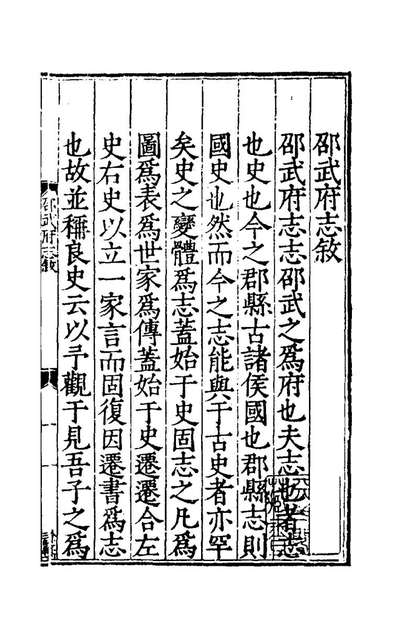 邵武府志敘
邵武府志志邵武之爲府也夫志也者志
也史也今之郡縣古諸侯國也郡縣志則
國史也然而今之志能與于古史者亦罕
矣史之變體爲志蓋始于史固志之凡爲
圖爲表爲世家爲傳蓋始于史遷遷合左
史右史以立一家言而固復因遷書爲志
也故並稱良史云以予觀于見吾子之爲
邵武府志敘